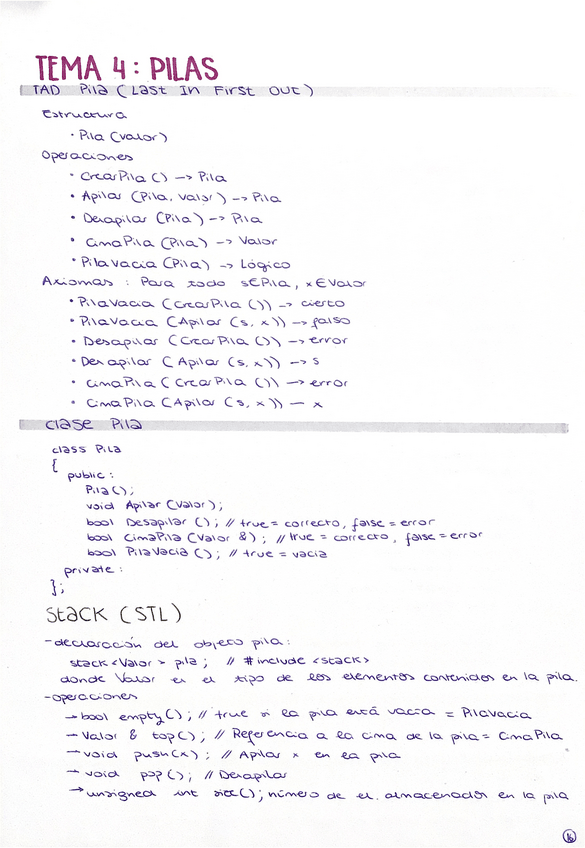 TEMA 4: PILAS
TAD Pila (Last In First Out)
Estructura
• Pila (valor)
Operaciones
• CrearPila () --> Pila
• Apilar (Pila, valor) --> Pila
• Desapilar (Pila) --> Pila
• CimaPila (Pila) --> Valor
• PilaVacia (Pila) --> Lógico
Axiomas : Para todo s∈Pila, x∈Valor
• PilaVacia (CrearPila ()) --> cierto
• PilaVacia (Apilar (s, x)) --> falso
• Desapilar (CrearPila ()) --> error
• Desapilar (Apilar (s, x)) --> s
• CimaPila (CrearPila ()) --> error
• CimaPila (Apilar (s, x)) — x
clase Pila
class Pila
{
public :
Pila ();
void Apilar (Valor);
bool Desapilar (); // true = correcto, false = error
bool CimaPila (Valor &); // true = correcto, false = error
bool PilaVacia (); // true = vacia
private :
};
Stack (STL)
-declaración del objeto pila:
stack <Valor> pila ; // #include <stack>
donde Valor es el tipo de los elementos contenidos en la pila.
-operaciones
→ bool empty(); // true si la pila está vacía = PilaVacia
→ Valor & top(); // Referencia a la cima de la pila = CimaPila
→ void push(x); // Apilar x en la pila
→ void pop(); // Desapilar
→ unsigned int size(); número de el. almacenados en la pila
16